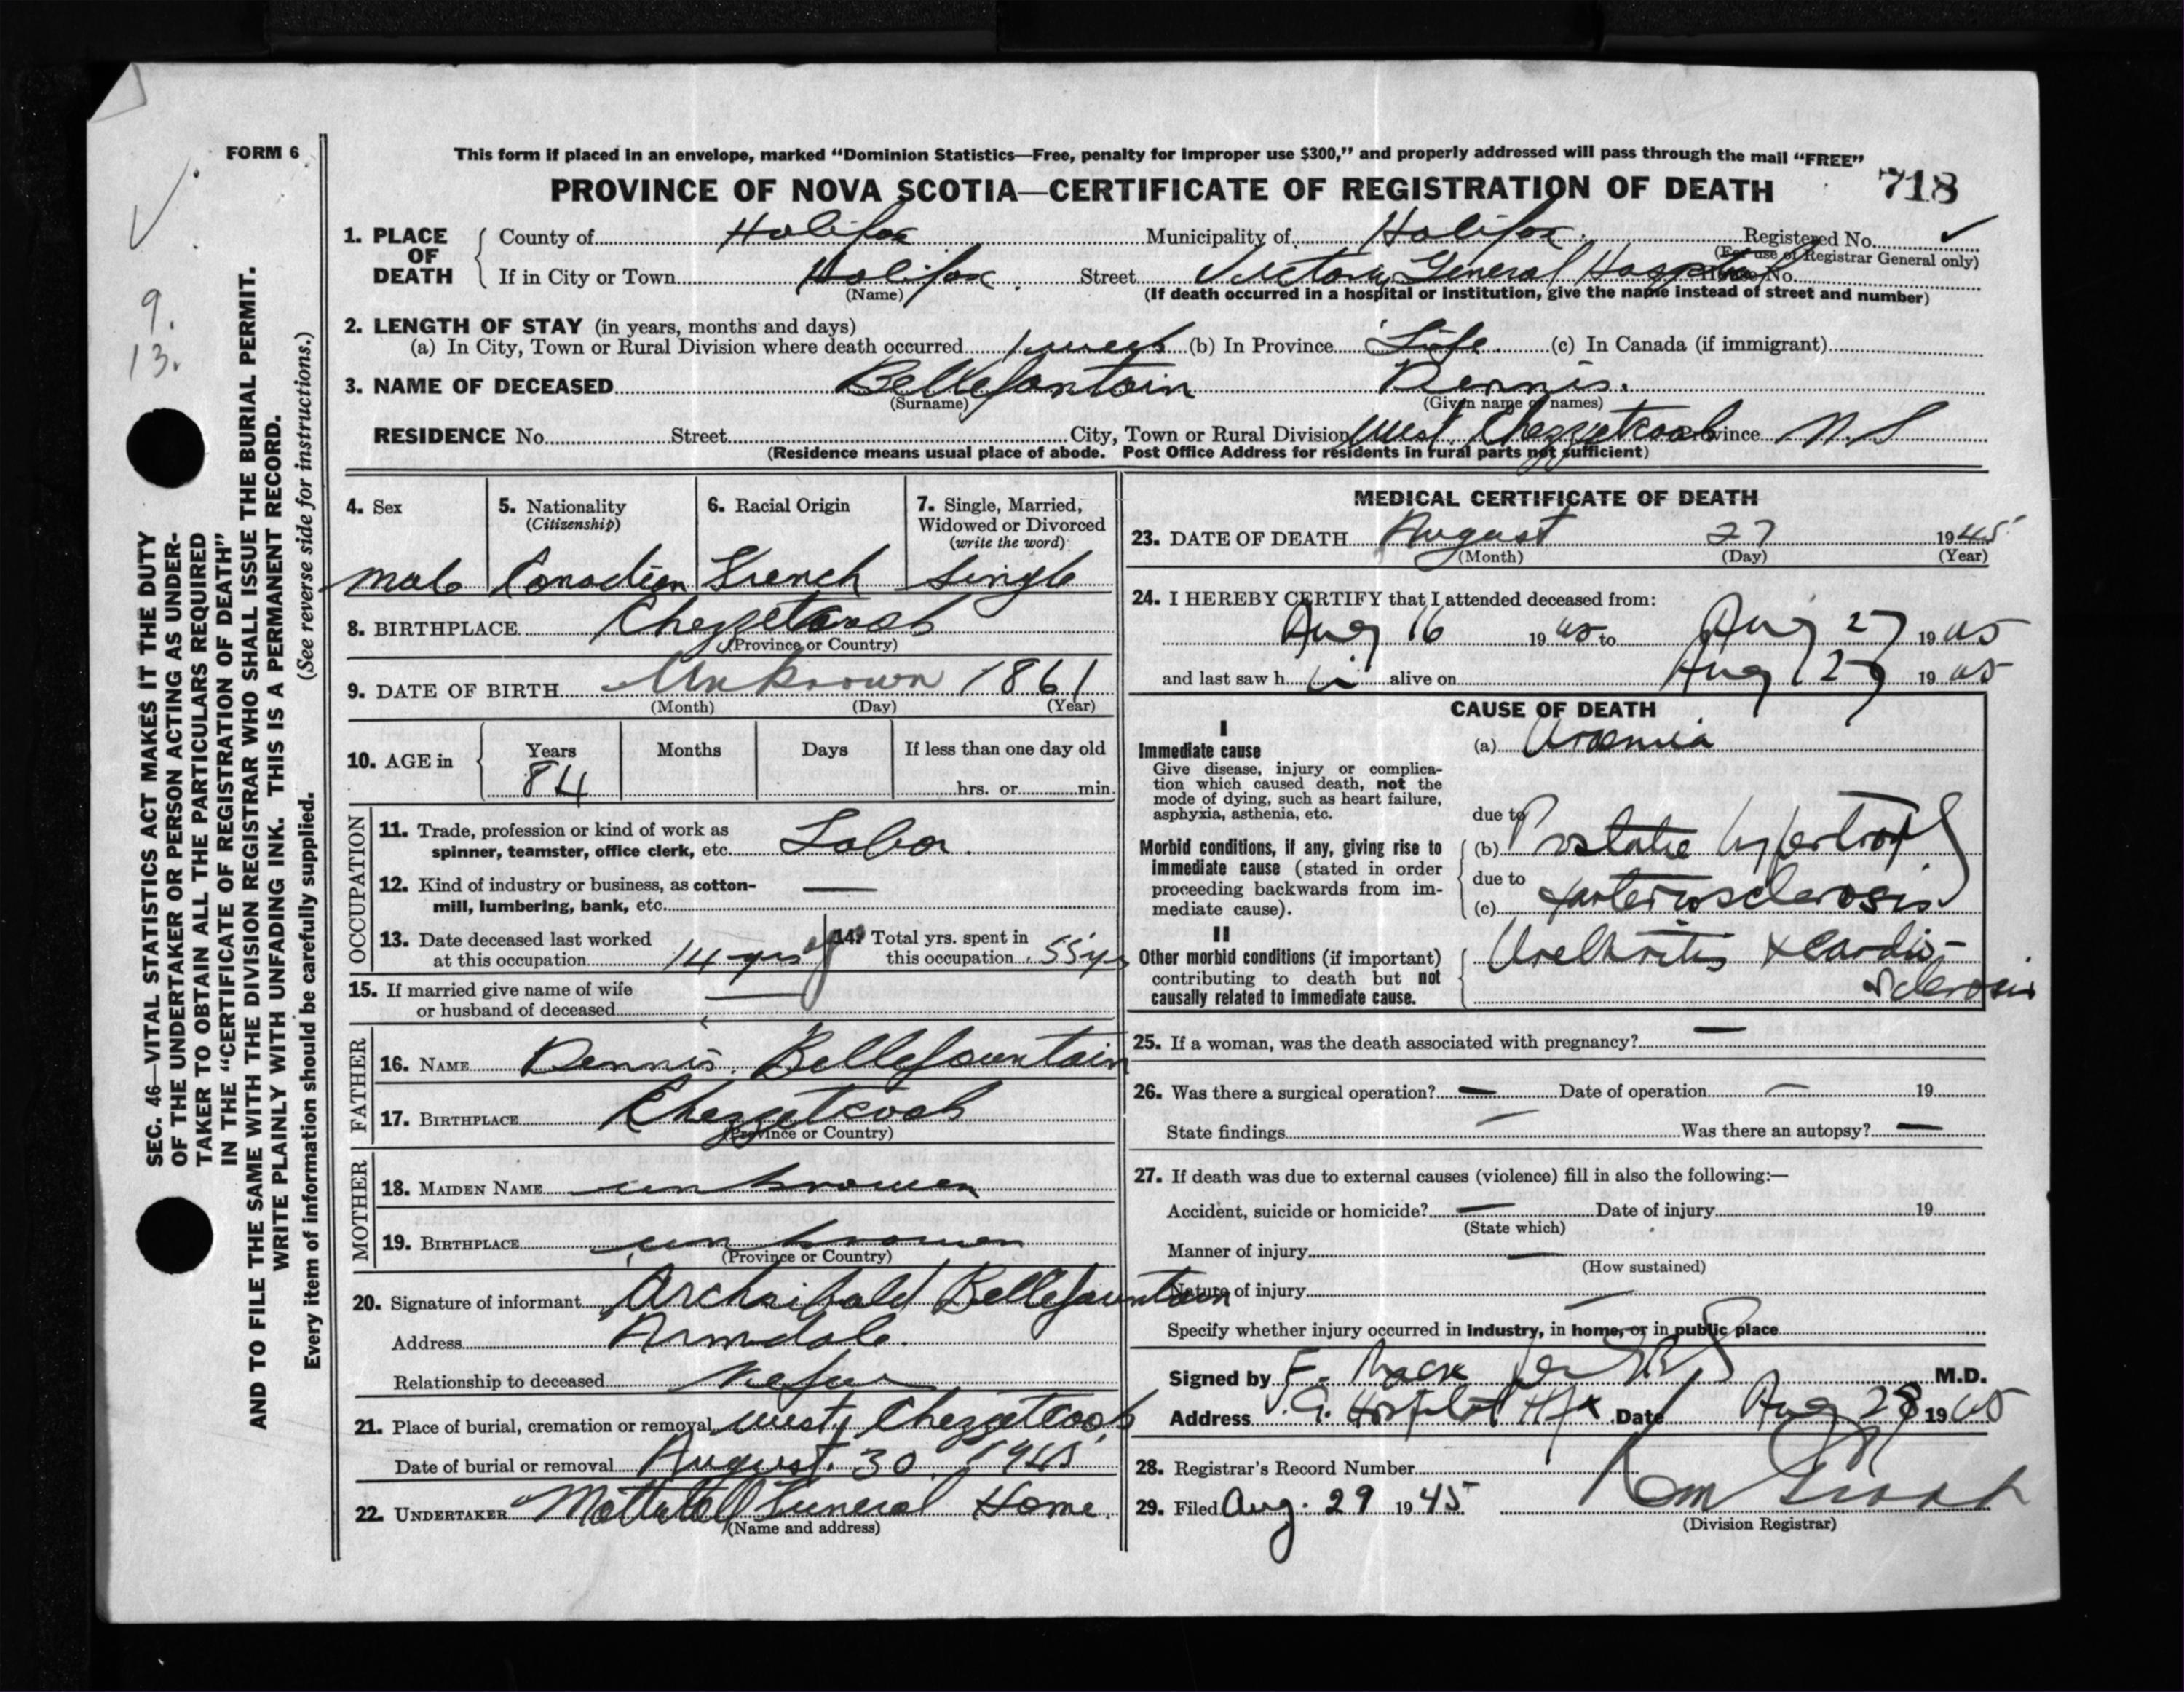 FORM 6
This form if placed in an envelope, marked "Dominion Statistics—Free, penalty for improper use $300," and properly addressed will pass through the mail "FREE"
PROVINCE OF NOVA SCOTIA—CERTIFICATE OF REGISTRATION OF DEATH 718
1. PLACE OF DEATH County of Halifax Municipality of Halifax Registered No.
(For use of Registrar General only)
If in City or Town Halifax Street Victoria General Hospital House No.
(Name) (If death occurred in a hospital or institution, give the name instead of street and number)
2. LENGTH OF STAY (in years, months and days)
(a) In City, Town or Rural Division where death occurred 1 week (b) In Province Life (c) In Canada (if immigrant)
3. NAME OF DECEASED Bellefontain Dennis.
(Surname) (Given name or names)
RESIDENCE No. Street City, Town or Rural Division West Chezzetcook Province N.S
(Residence means usual place of abode. Post Office Address for residents in rural parts not sufficient)
9.
13.
SEC. 46—VITAL STATISTICS ACT MAKES IT THE DUTY
OF THE UNDERTAKER OR PERSON ACTING AS UNDER-
TAKER TO OBTAIN ALL THE PARTICULARS REQUIRED
IN THE "CERTIFICATE OF REGISTRATION OF DEATH"
AND TO FILE THE SAME WITH THE DIVISION REGISTRAR WHO SHALL ISSUE THE BURIAL PERMIT.
WRITE PLAINLY WITH UNFADING INK. THIS IS A PERMANENT RECORD.
Every item of information should be carefully supplied. (See reverse side for instructions.)
4. Sex 5. Nationality 6. Racial Origin 7. Single, Married,
(Citizenship) Widowed or Divorced
(write the word)
male Canadian French Single
8. BIRTHPLACE Chezzetcook
(Province or Country)
9. DATE OF BIRTH Unknown 1861
(Month) (Day) (Year)
10. AGE in Years Months Days If less than one day old
84 hrs. or min.
OCCUPATION
11. Trade, profession or kind of work as
spinner, teamster, office clerk, etc. Labor.
12. Kind of industry or business, as cotton-
mill, lumbering, bank, etc. —
13. Date deceased last worked 14. Total yrs. spent in
at this occupation 14 yrs this occupation 55 yrs
15. If married give name of wife
or husband of deceased —
FATHER
16. NAME Dennis. Bellefountain
17. BIRTHPLACE Chezzetcook
(Province or Country)
MOTHER
18. MAIDEN NAME unknowen
19. BIRTHPLACE unknowen
(Province or Country)
20. Signature of informant Archibald Bellefountain
Address Armdale.
Relationship to deceased
21. Place of burial, cremation or removal West Chezzetcook
Date of burial or removal August. 30 1945
22. UNDERTAKER Mattatall Funeral Home.
(Name and address)
MEDICAL CERTIFICATE OF DEATH
23. DATE OF DEATH August 27 1945
(Month) (Day) (Year)
24. I HEREBY CERTIFY that I attended deceased from:
Aug 16 1945 to Aug 27 1945
and last saw h alive on Aug 27 1945
CAUSE OF DEATH
I
Immediate cause (a) Uraemia
Give disease, injury or complica-
tion which caused death, not the
mode of dying, such as heart failure,
asphyxia, asthenia, etc. due to
Morbid conditions, if any, giving rise to (b) Prostatic hypertrophy
immediate cause (stated in order
proceeding backwards from im- due to
mediate cause). (c) & arteriosclerosis
II
Other morbid conditions (if important) Urethritis & Cardio-
contributing to death but not sclerosis
causally related to immediate cause.
25. If a woman, was the death associated with pregnancy? —
26. Was there a surgical operation? — Date of operation — 19
State findings — Was there an autopsy? —
27. If death was due to external causes (violence) fill in also the following:—
Accident, suicide or homicide? — Date of injury 19
(State which)
Manner of injury —
(How sustained)
Nature of injury —
Specify whether injury occurred in industry, in home, or in public place
Signed by F. M.D.
Address V.G. Hospital Hfx Date Aug 28 1945
28. Registrar's Record Number
29. Filed Aug. 29 1945
(Division Registrar)